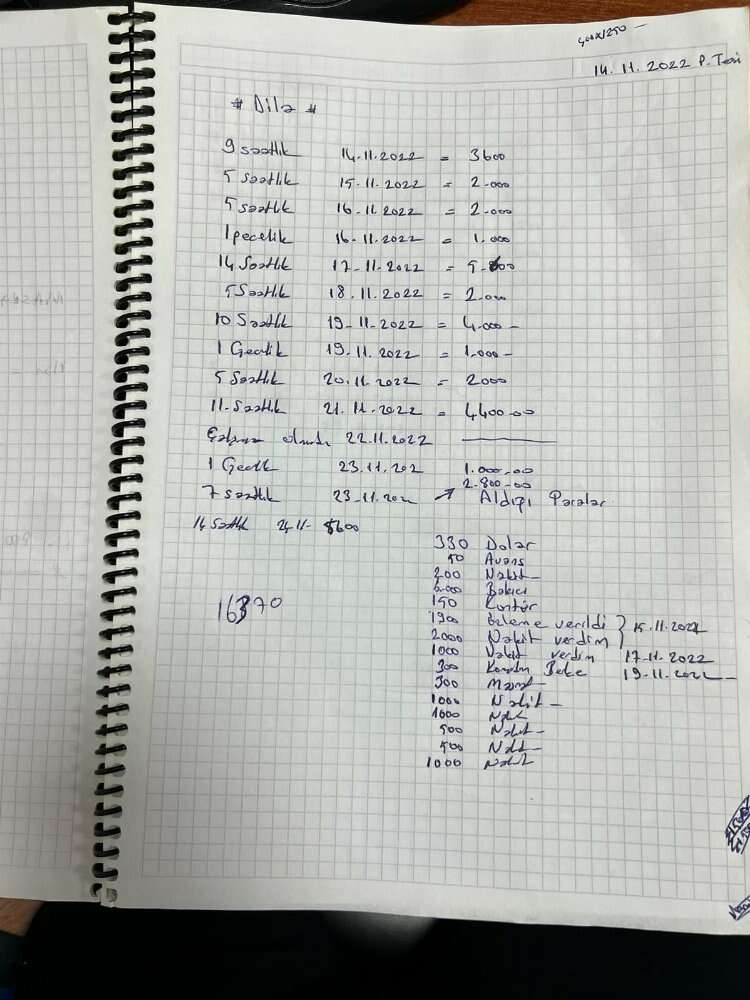 400x1250 -
14.11.2022 P.Tesi
# Dila #
9 saatlik 14.11.2022 = 3600
5 saatlik 15.11.2022 = 2.000
5 saatlik 16.11.2022 = 2.000
1 pecelik 16.11.2022 = 1.000
14 Saatlik 17.11.2022 = 5.600
5 Saatlik 18.11.2022 = 2.000
10 Saatlik 19.11.2022 = 4.000-
1 Gecelik 19.11.2022 = 1.000-
5 Saatlik 20.11.2022 = 2000
11.Saatlik 21.11.2022 = 4400.00
22.11.2022
1 Gecelik 23.11.202 1.000.00
2.800.00
7 saatlik 23.11.202 Aldığı Paralar
14 Saatlik 24.11- 5600
330 Dolar
50 Avans
200 Nakit
Bakıcı
150 Kontör
16370
1900 verildi
15.11.2022
2000 Nakit verdim
1000 Nakit verdim 17.11.2022
300 19.11.2022-
300
1000 Nakit-
1000 Nakit
500 Nakit-
500 Nakit
1000 Nakit